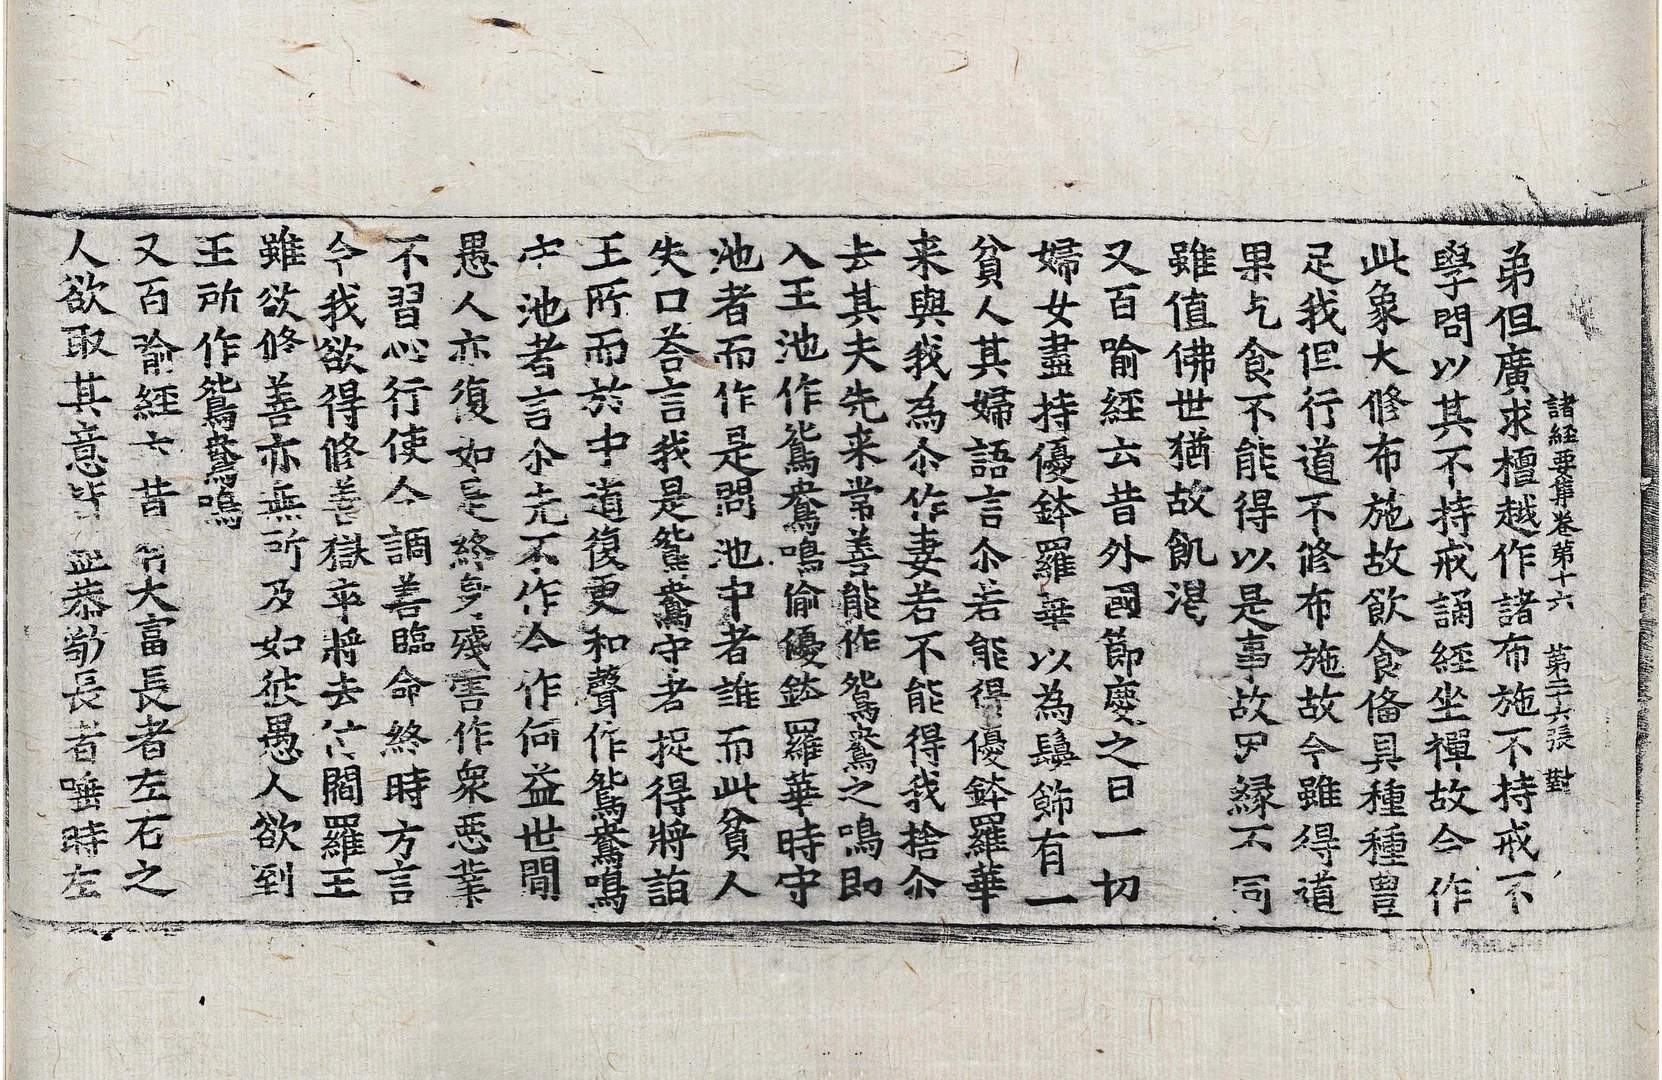 諸經要集卷第十六　第二十六張　對
弟但廣求檀越作諸布施不持戒不
學問以其不持戒誦經坐禪故今作
此象大修布施故飲食俻具種種豊
足我但行道不修布施故今雖得道
果乞食不能得以是事故因縁不同
雖值佛世猶故飢渴
又百喻經云昔外國節慶之日一切
婦女盡持優鉢羅華以為鬘飾有一
貧人其婦語言尒若能得優鉢羅華
来與我為尒作妻若不能得我捨尒
去其夫先来常善能作鴛鴦之鳴即
入王池作鴛鴦鳴偷優鉢羅華時守
池者而作是問池中者誰而此貧人
失口荅言我是鴛鴦守者捉得將詣
王所而於中道復更和聲作鴛鴦鳴
守池者言尒先不作今作何益世間
愚人亦復如是終身殘害作衆惡業
不習心行使令調善臨命終時方言
今我欲得修善獄卒將去付閻羅王
雖欲修善亦無所及如彼愚人欲到
王所作鴛鴦鳴
又百喻經云昔有大富長者左右之
人欲取其意皆盡恭敬長者唾時左